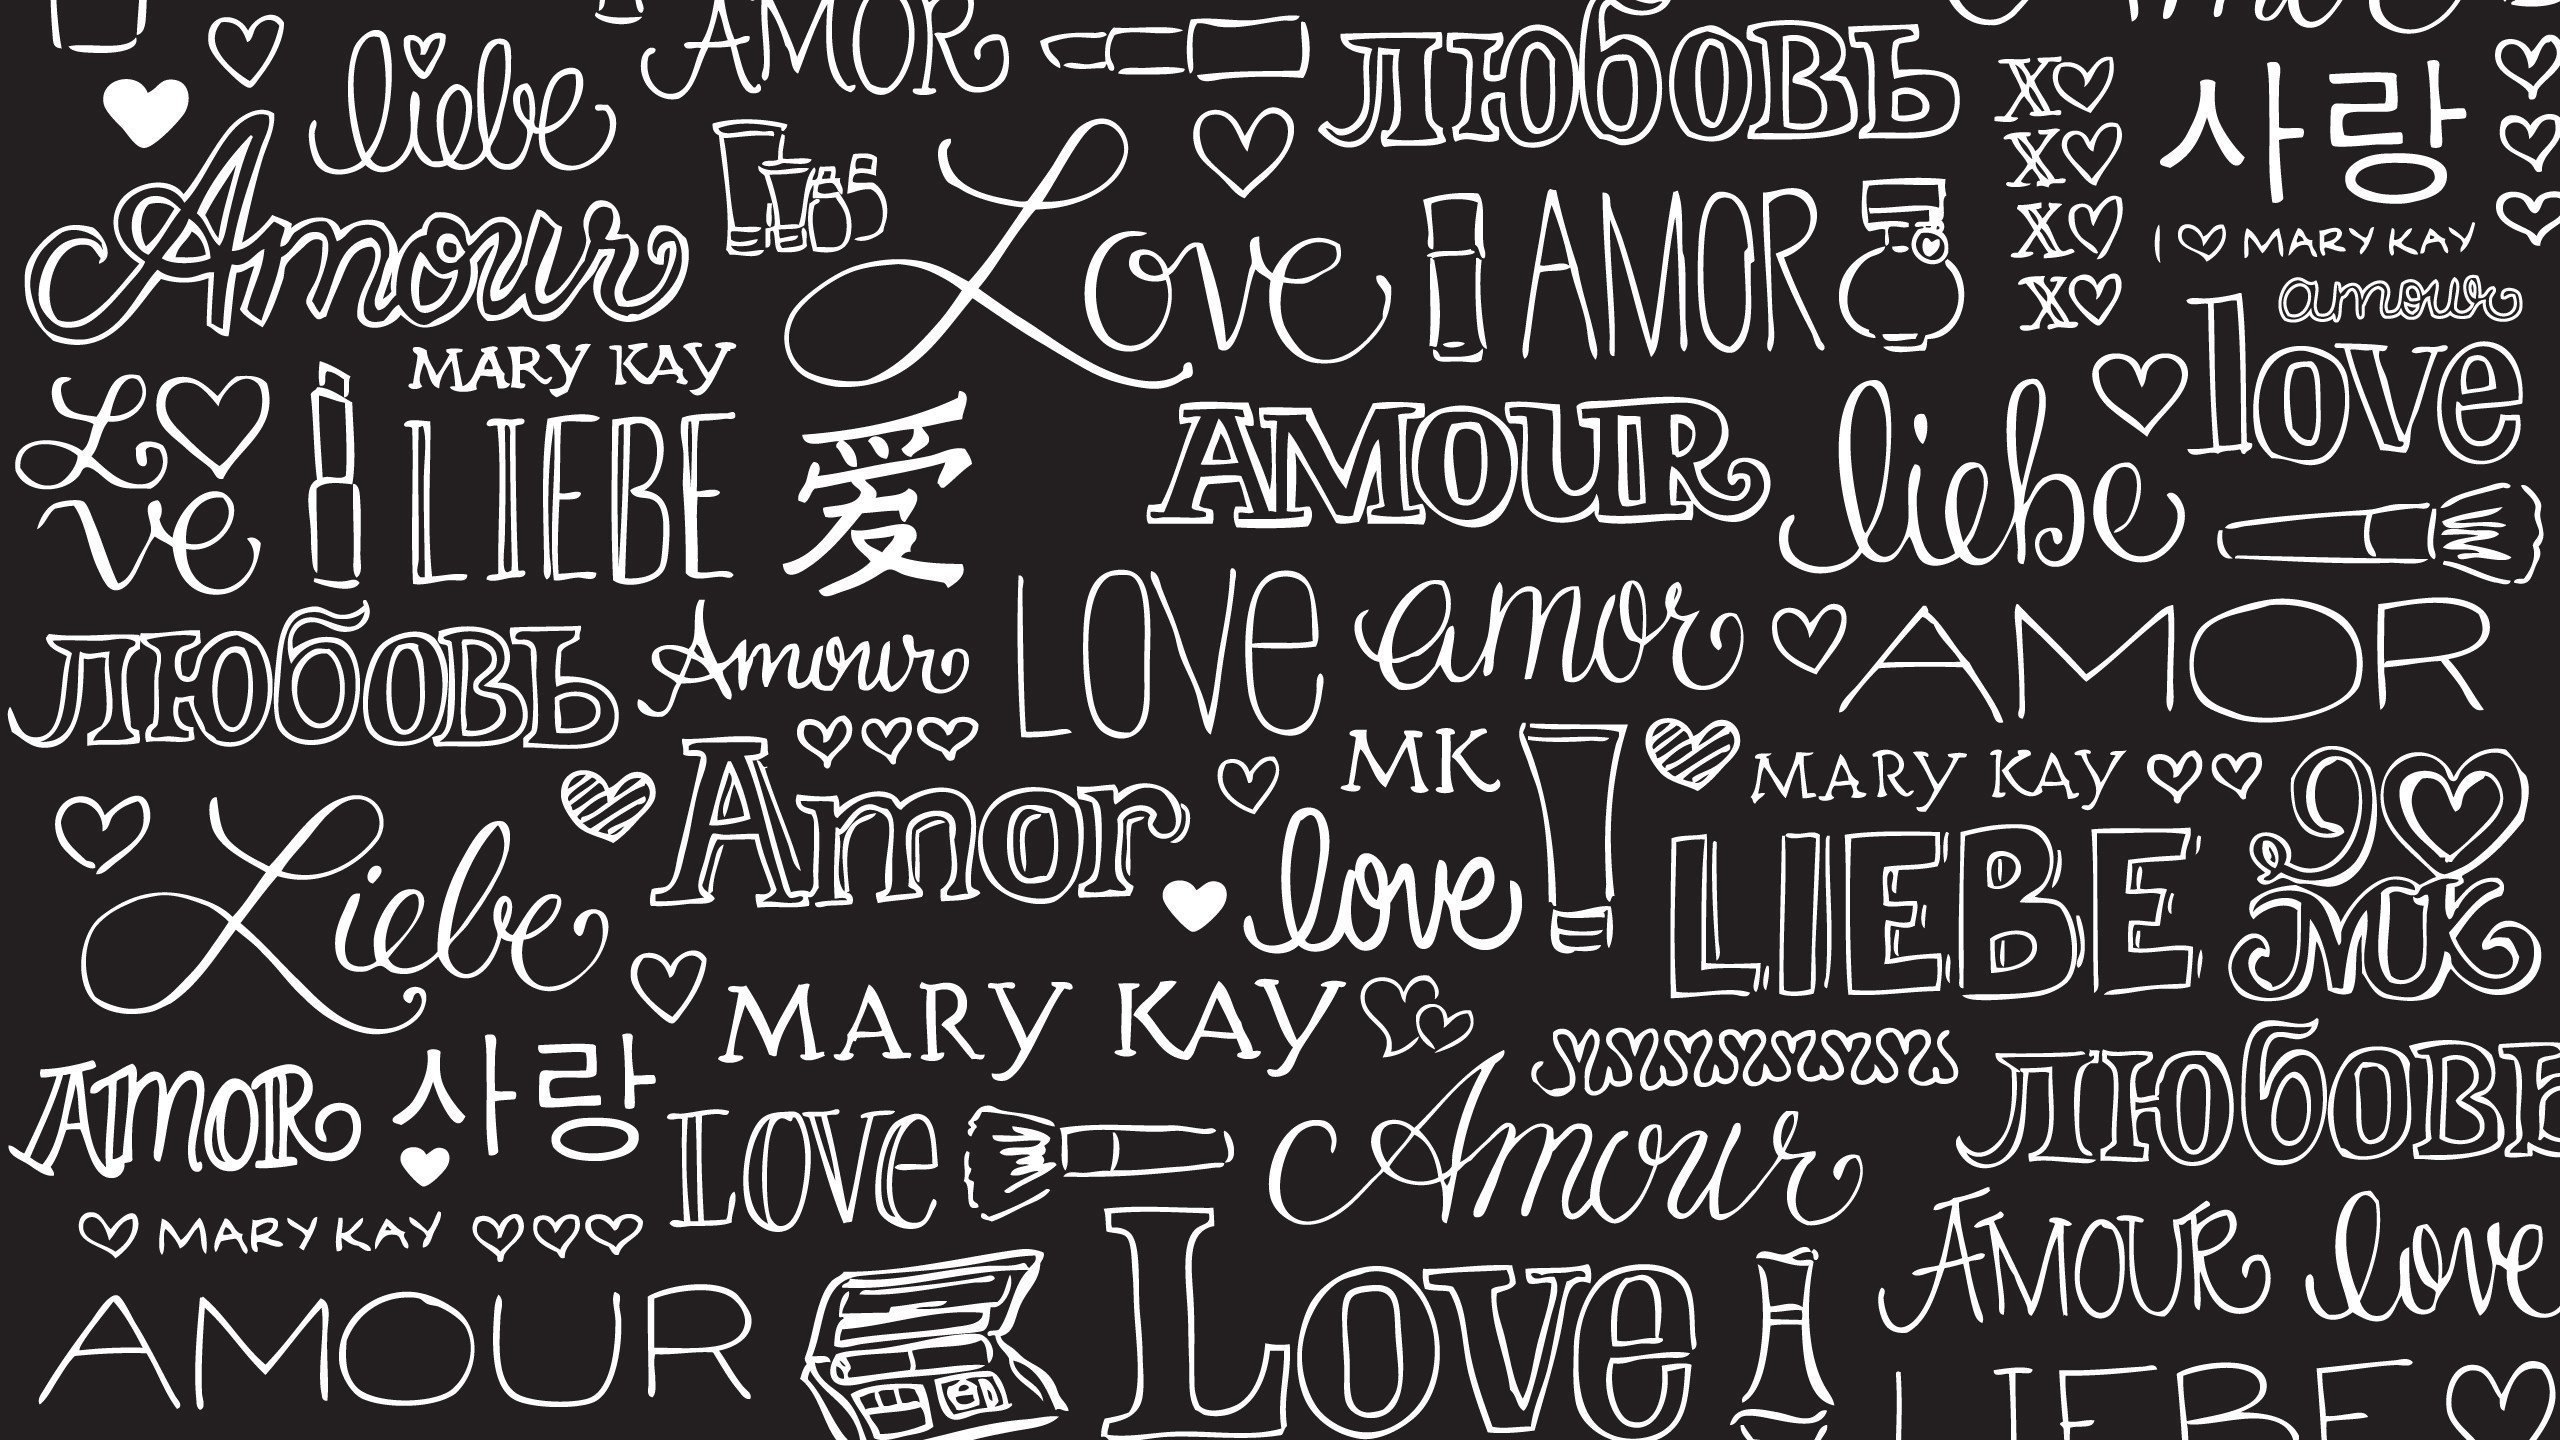 AMOR
liebe
ЛЮбОВЬ
X♡
X♡
X♡
X♡
사랑
I ♡ MARY KAY
Amour
Love
AMOR
amour
love
MARY KAY
L♡
ve
LIEBE
爱
AMOUR
liebe
ЛЮбОВЬ
Amour
LOVe
amor
AMOR
Amor
MK
MARY KAY
Liebe
love
LIEBE
MK
MARY KAY
AMOR
사랑
LOVe
Amour
ЛЮбОВЬ
♡ MARY KAY ♡♡♡
AMOUR
love
AMOUR
Love
LIEBE